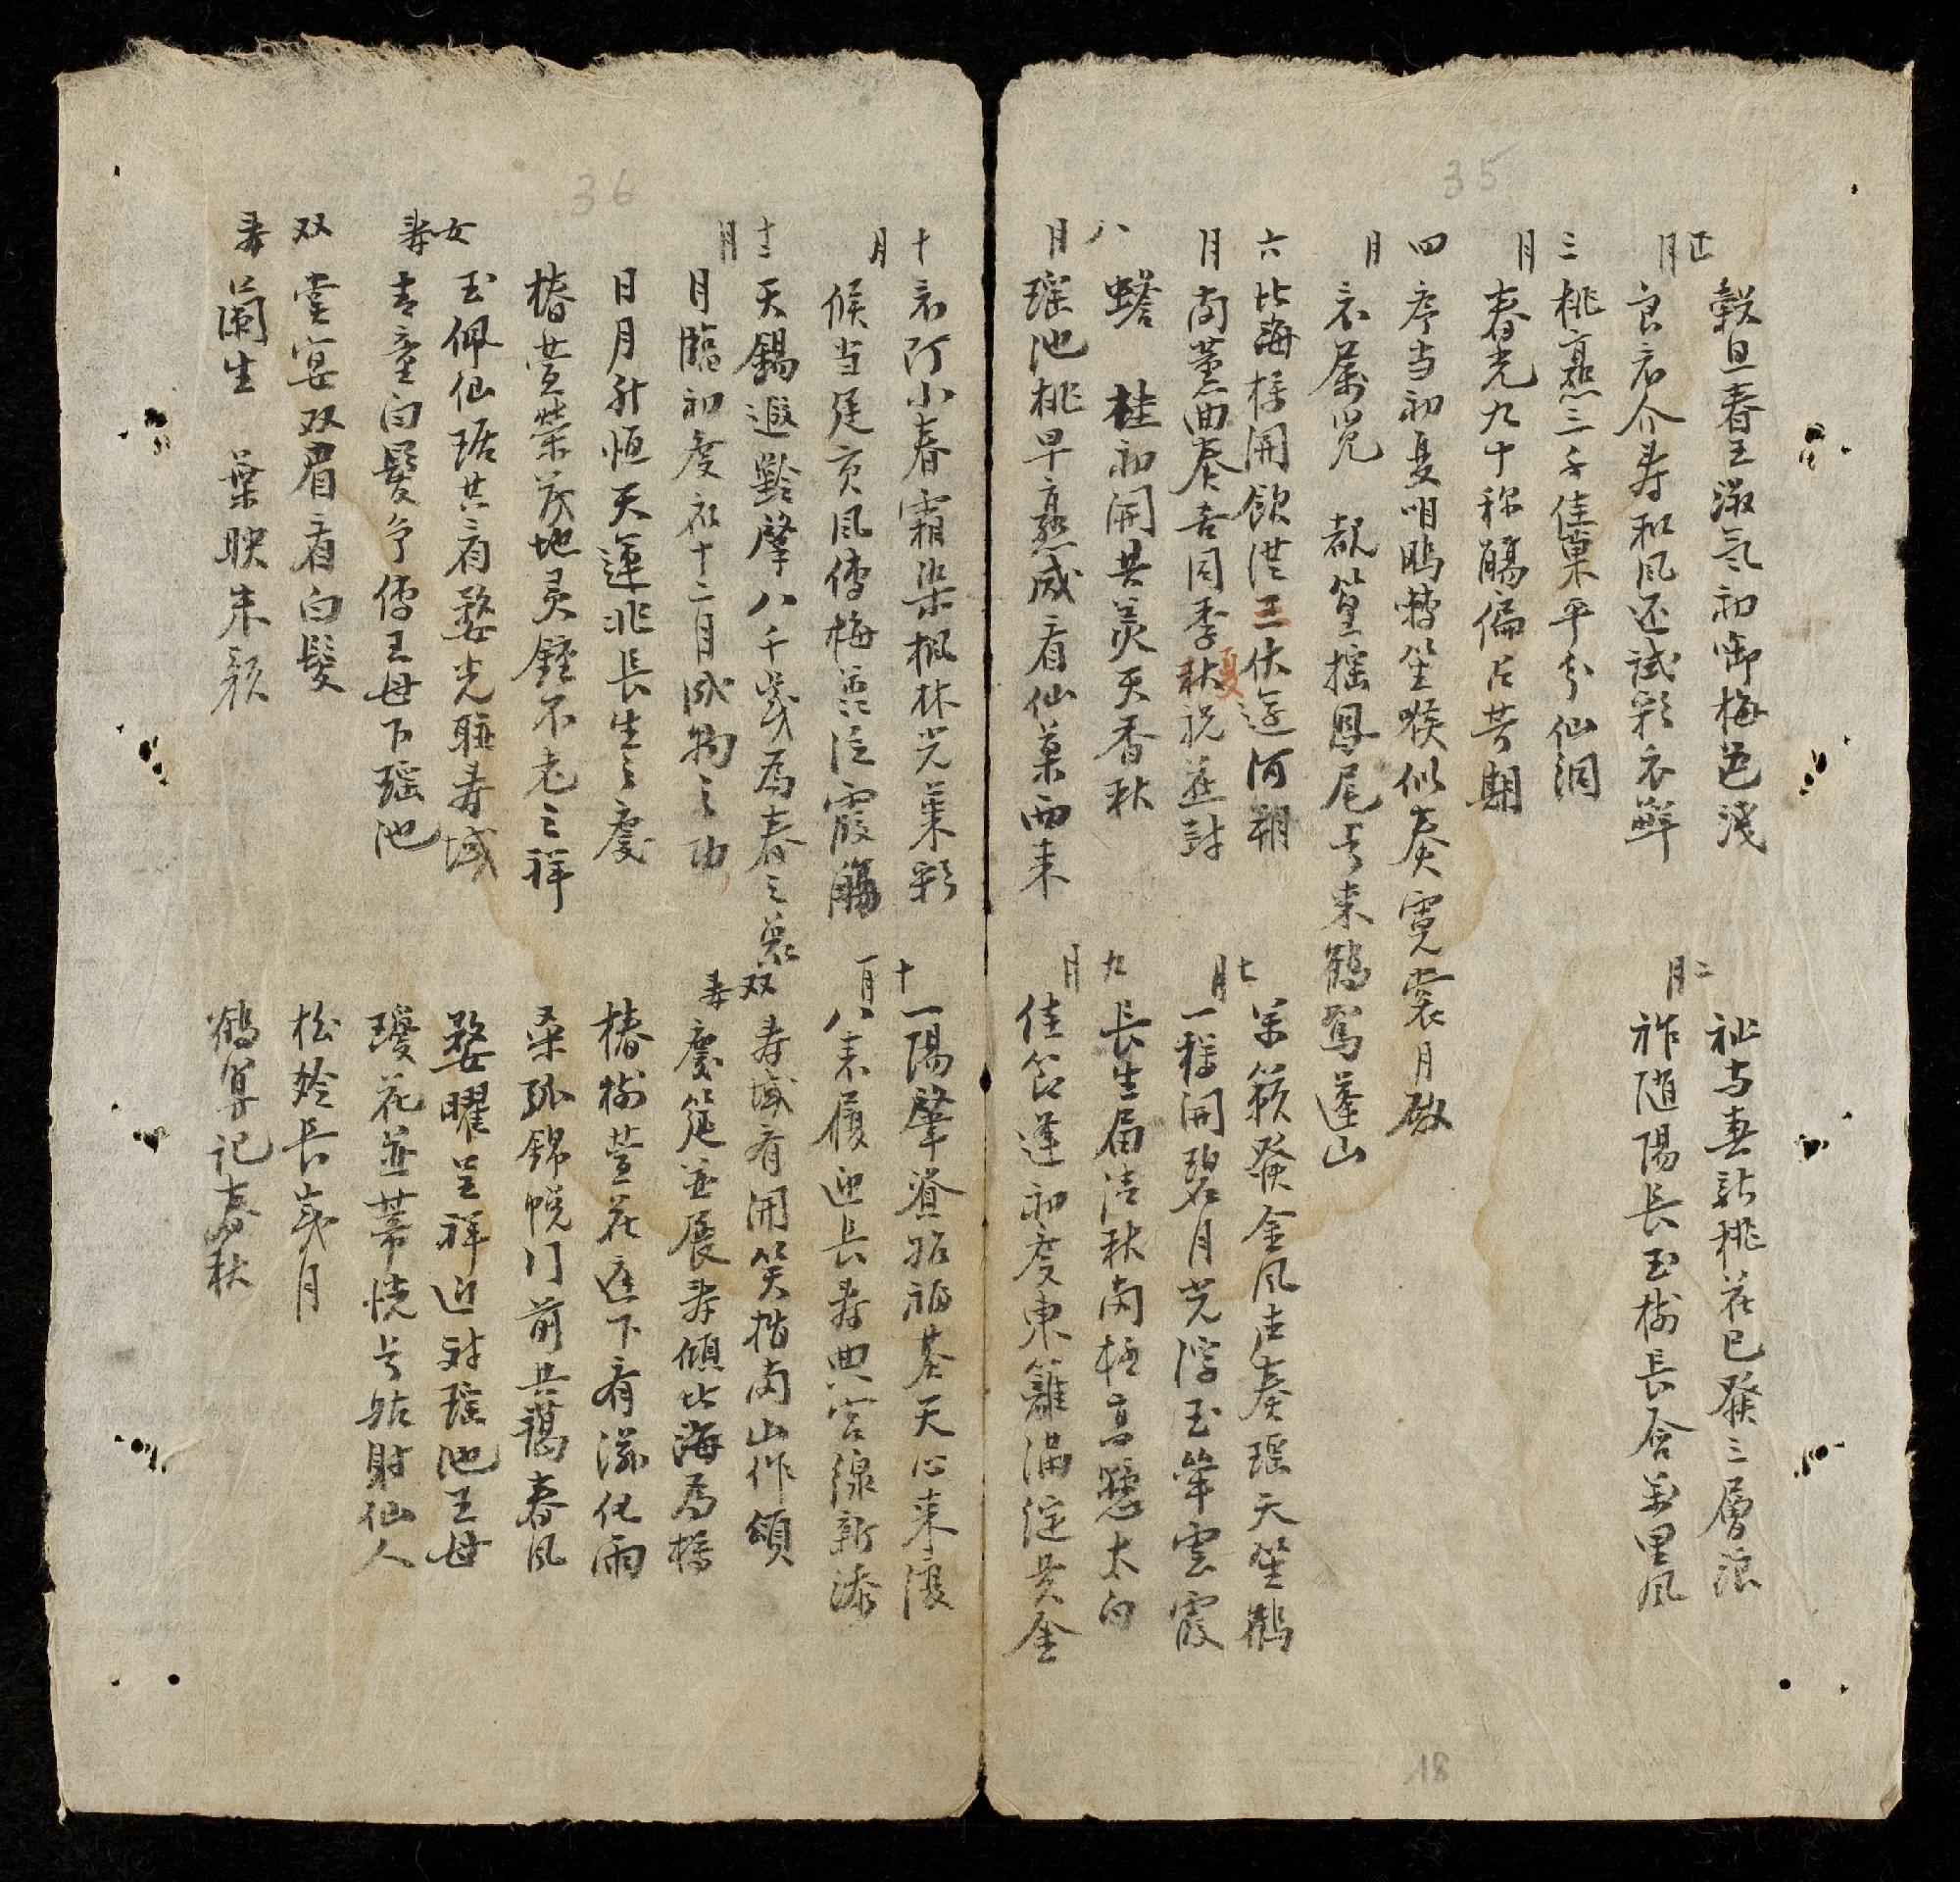 35
正月
穀旦春王淑氣初啣梅色淺
良辰介寿和風还試彩衣鮮
二月
祉与春新桃花已發三層浪
祚随陽長玉樹長含萬里風
三月
桃熟三千佳菓平分仙洞
春光九十称觴偏占芳期
四月
序当初夏 囀笙喉似奏霓裳月殿
篁摇鳳尾 来鶴駕蓬山
六月
北海樽開飲 三伏 河朔
南薰曲奏吉同季秋夏祝
七月
發金風声奏瑶天笙鶴
一樽開碧月光浮玉斝雲霞
八月
蟾 桂初開共羡天香秋
瑶池桃早熟咸看仙菓西来
九月
長生届 秋南極高懸太白
佳節逢初度東籬滿泛黄金
18
36
十月
小春霜染楓林光莱彩
候当 亥風傳梅蕊泛霞觴
十一月
一陽肇資始福基天心来復
八 履迎長寿典宫線新添
十二月
天錫遐齡肇八千歲為春之
月臨初度在十二月成物之功
双寿
寿域 開笑指南山作頌
慶筵並展寿傾北海為樽
日月升恒天運兆長生之慶
椿萱榮茂地灵鍾不老之祥
椿樹萱花庭下看滋化雨
桑弧錦帨门前共藹春風
女寿
玉佩仙琚共看婺光联寿域
青童白髮争傳王母下瑶池
婺曜呈祥近対瑶池王母
瓊花並蒂恍与姑射仙人
双寿
堂宴双眉看白髮
蘭生 葉映朱颜
松 長歲月
鶴算記春秋